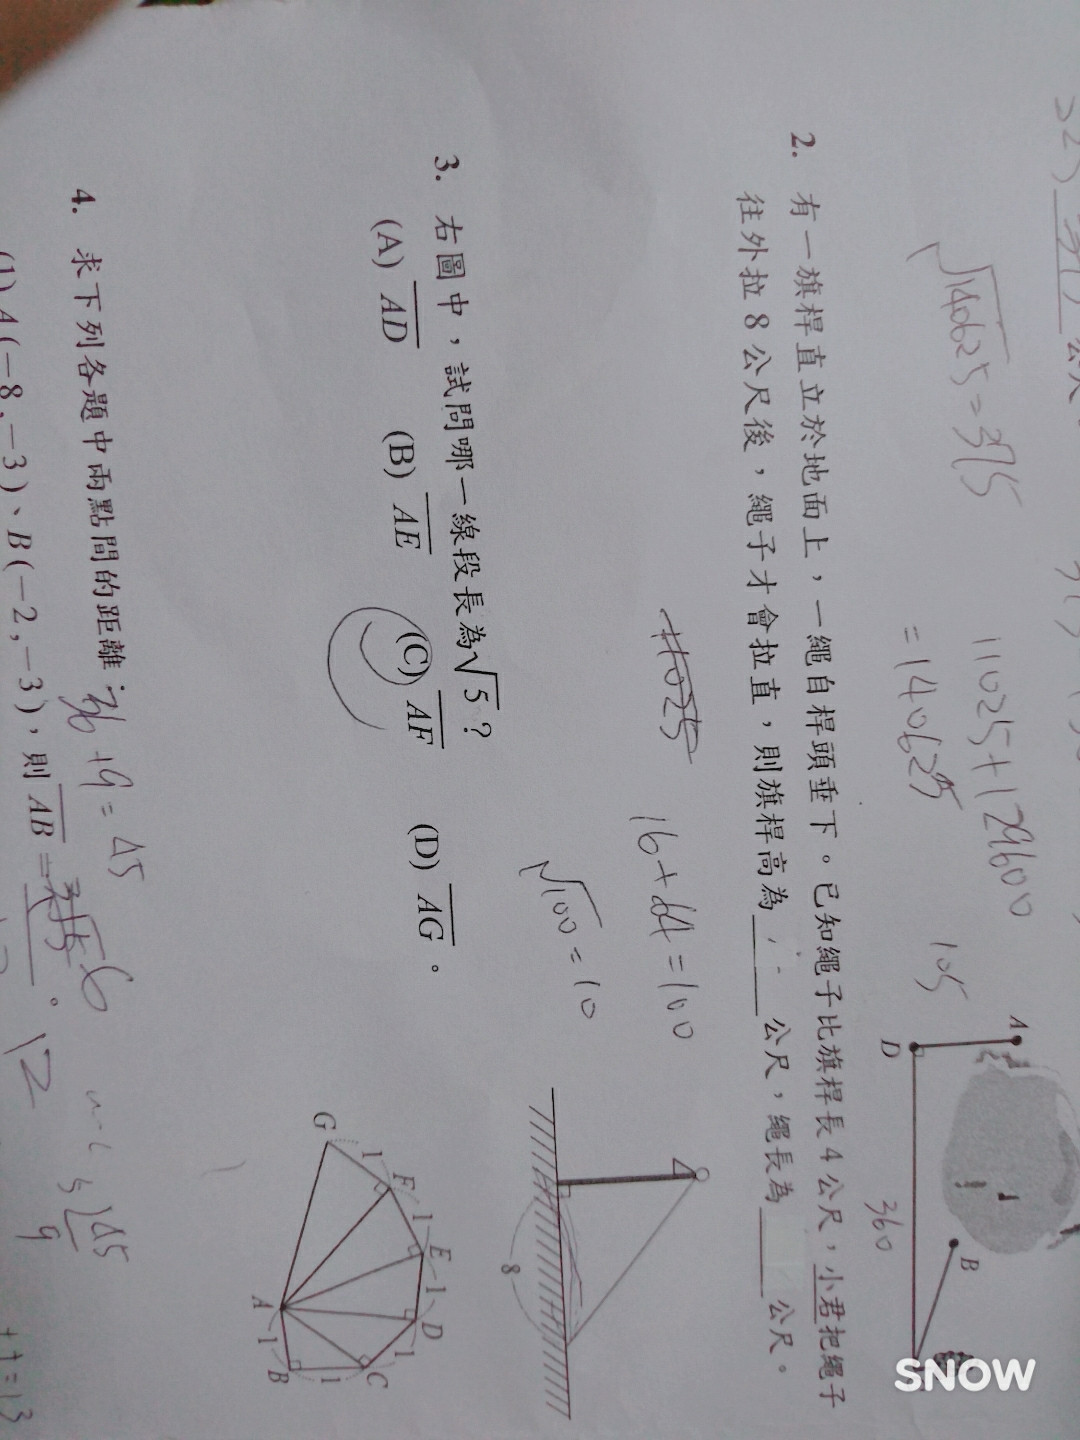 11025+129600
=140625
√140625=375
105
A
D
B
360
2. 有一旗桿直立於地面上，一繩自桿頭垂下。已知繩子比旗桿長 4 公尺，小君把繩子
往外拉 8 公尺後，繩子才會拉直，則旗桿高為______公尺，繩長為______公尺。
11025
16+64=100
√100=10
8
3. 右圖中，試問哪一線段長為√5？
(A) AD (B) AE (C) AF (D) AG。
G
1
F
1
E
1
D
1
C
1
B
1
A
4. 求下列各題中兩點間的距離：
36+9=45
(1) A(−8,−3)、B(−2,−3)，則 AB = 6。
12
45
9
SNOW